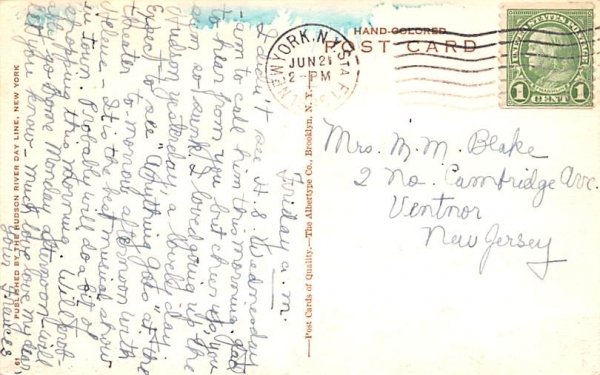 HAND-COLORED
POST CARD
NEW YORK, N.Y.
STA.
JUN 21
2-PM
UNITED STATES POSTAGE
1 CENT 1
Friday a.m.
I didn't see H. S. Wednesday
to call him this morning. Glad
to hear from you but
am so sunk. I loved going up the
Hudson yesterday, a lovely day.
Expect to see "Anything Goes" at the
theater to-morrow afternoon with
- It is the best musical show
in town. Probably will do a bit of
shopping this morning. Will prob-
ably go home Monday afternoon - will
let you know - much love my dear
Your Frances
Mrs. M. M. Blake
2 No. Cambridge Ave.
Ventnor
New Jersey
—Post Cards of Quality.—The Albertype Co., Brooklyn, N. Y.—
61 PUBLISHED BY THE HUDSON RIVER DAY LINE, NEW YORK